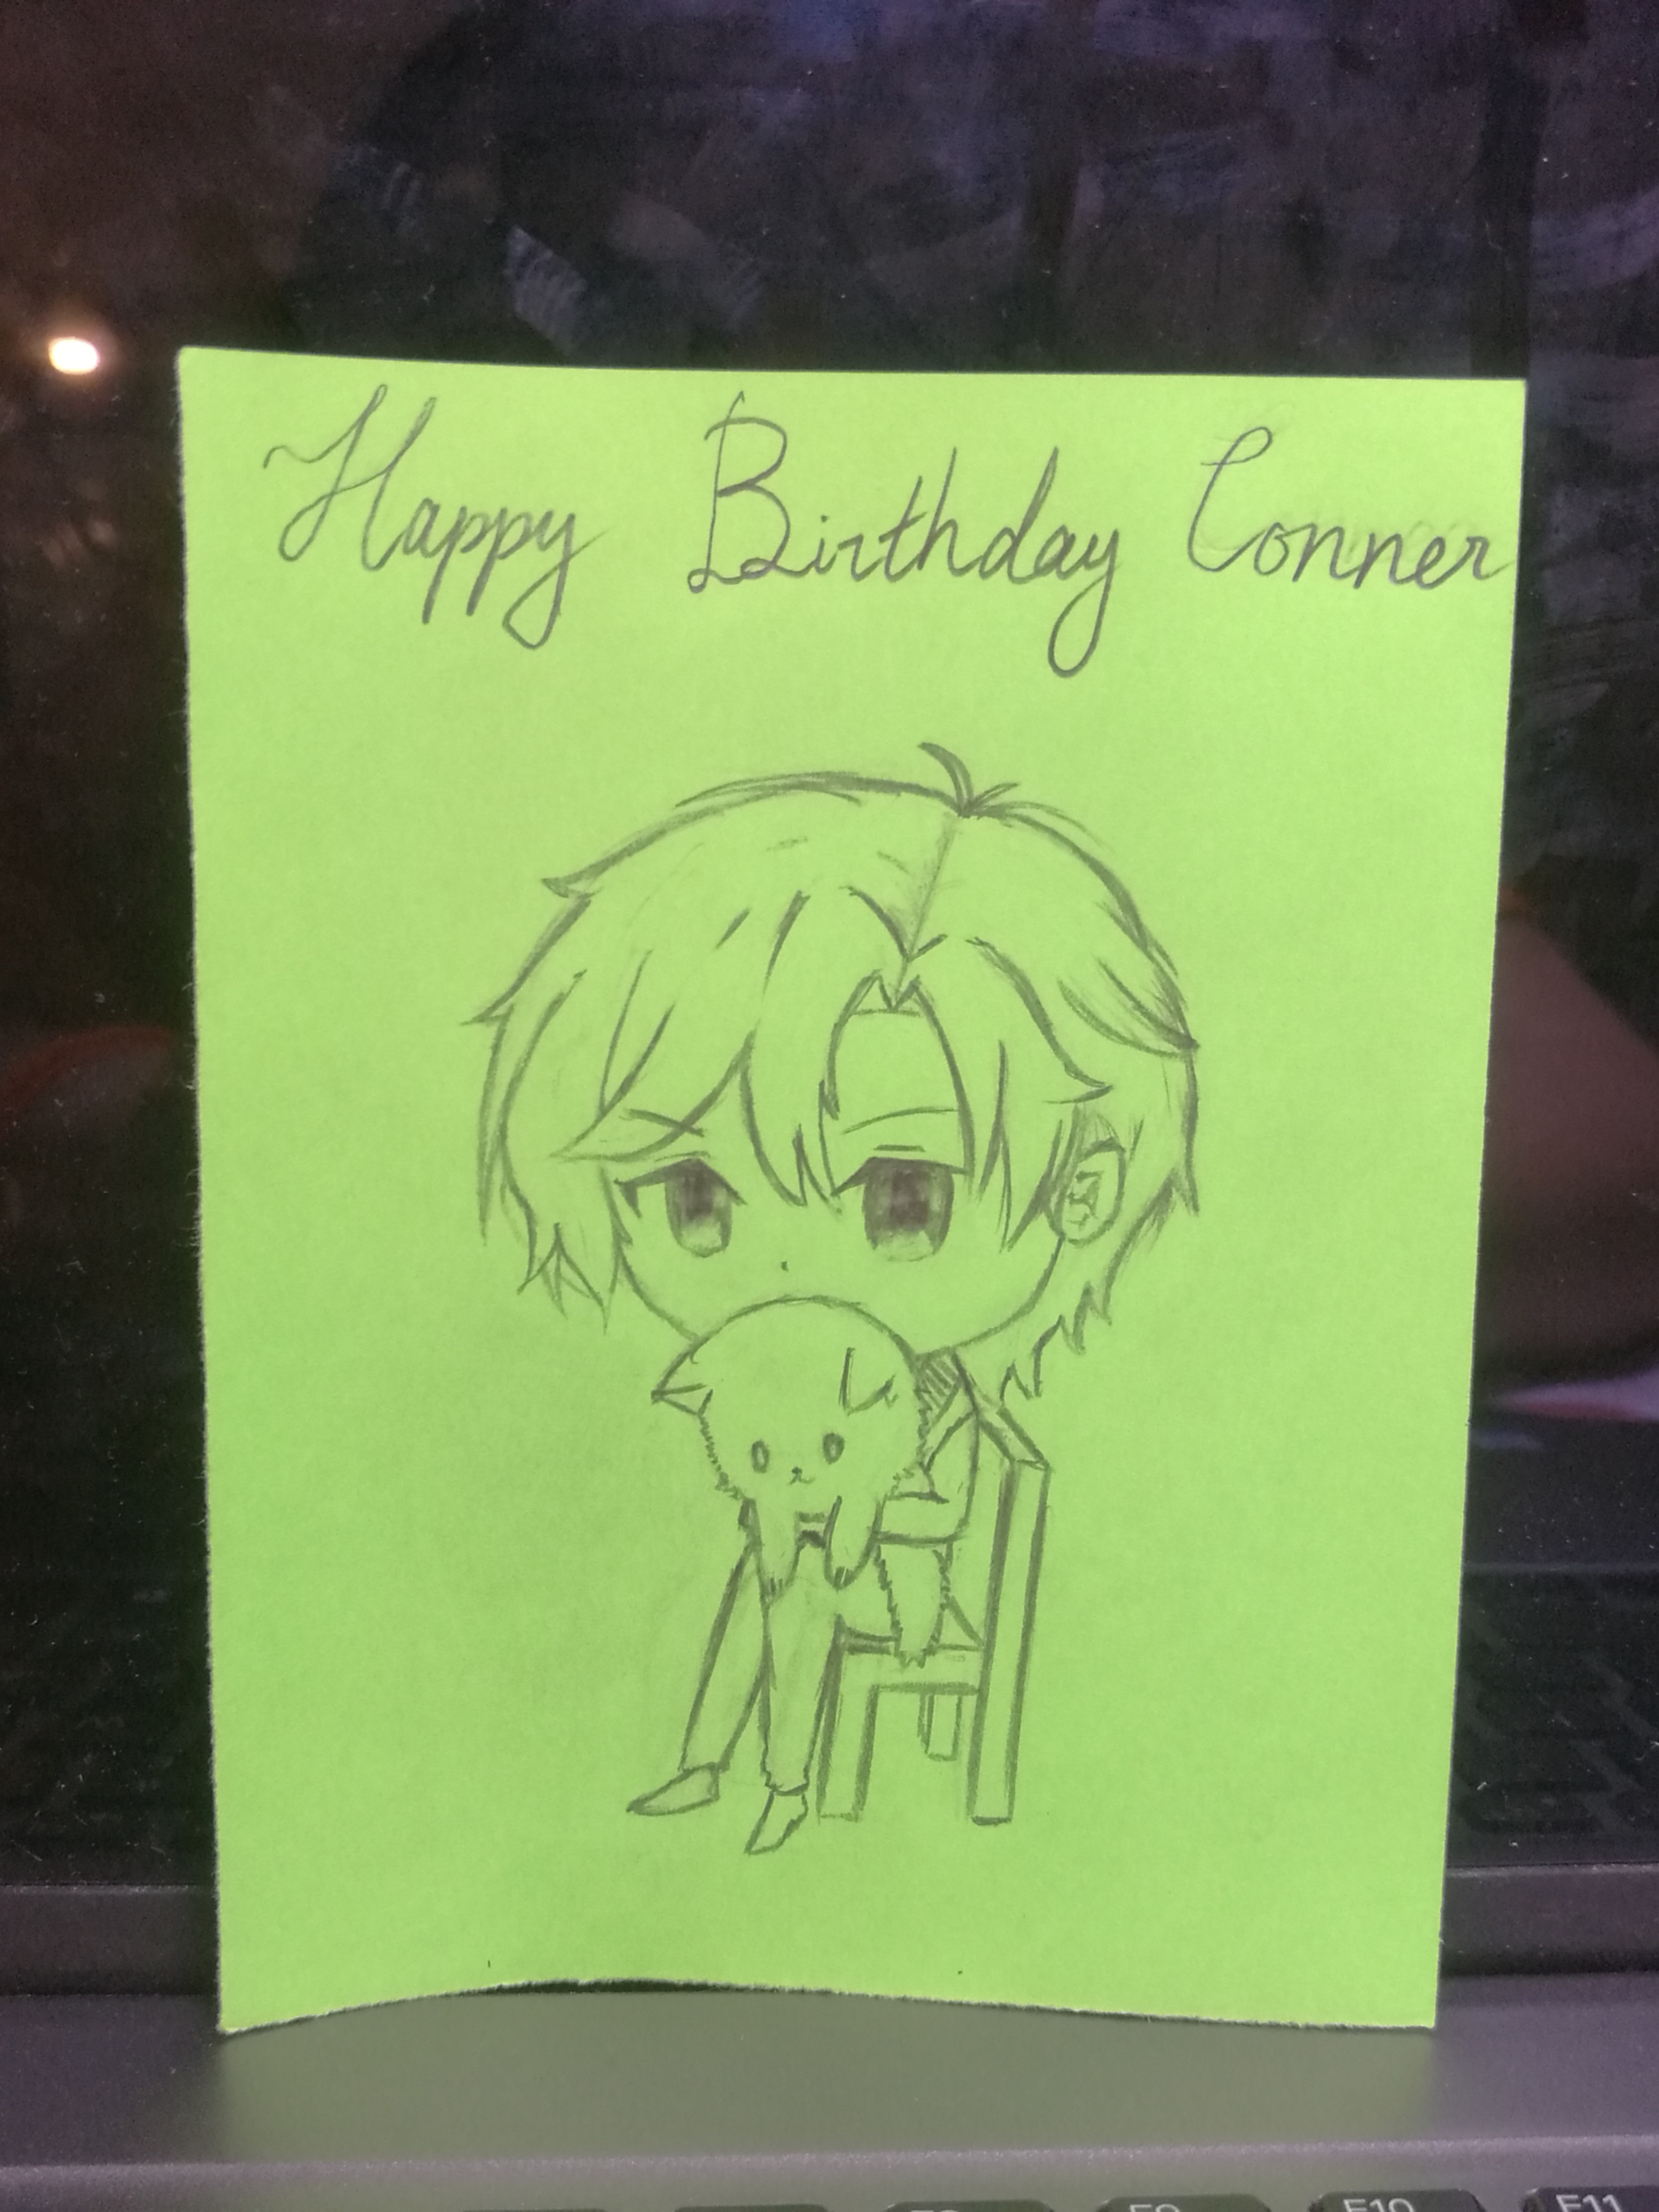 Happy Birthday Conner
F9 F10 F11